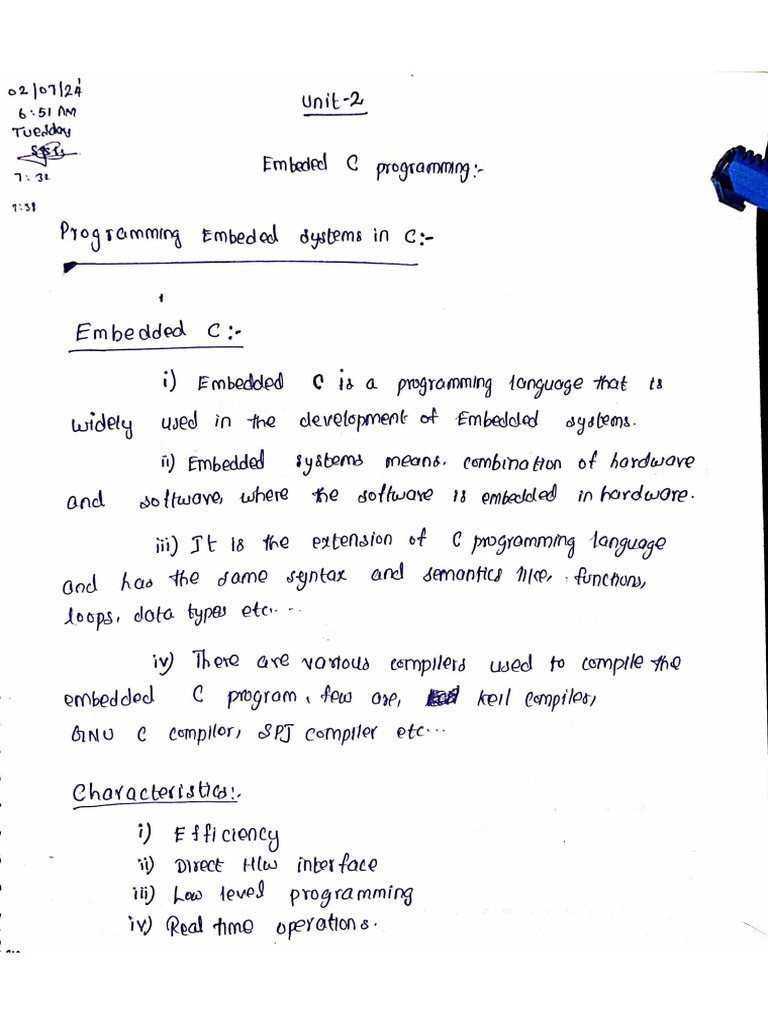 02/07/24
6:51 AM
Tuesday
7:32
7:38
Unit-2
Embeded C programming:-
Programming Embeded systems in C:-
Embedded C:-
i) Embedded C is a programming language that is
widely used in the development of Embedded systems.
ii) Embedded systems means. combination of hardware
and software, where the software is embedded in hardware.
iii) It is the extension of C programming language
and has the same syntax and semantics like, functions,
loops, data types etc....
iv) There are various compilers used to compile the
embedded C program, few are, keil compiler,
GNU C compilor, SPJ compiler etc...
Characteristics:-
i) Efficiency
ii) Direct H/w interface
iii) Low level programming
iv) Real time operations.